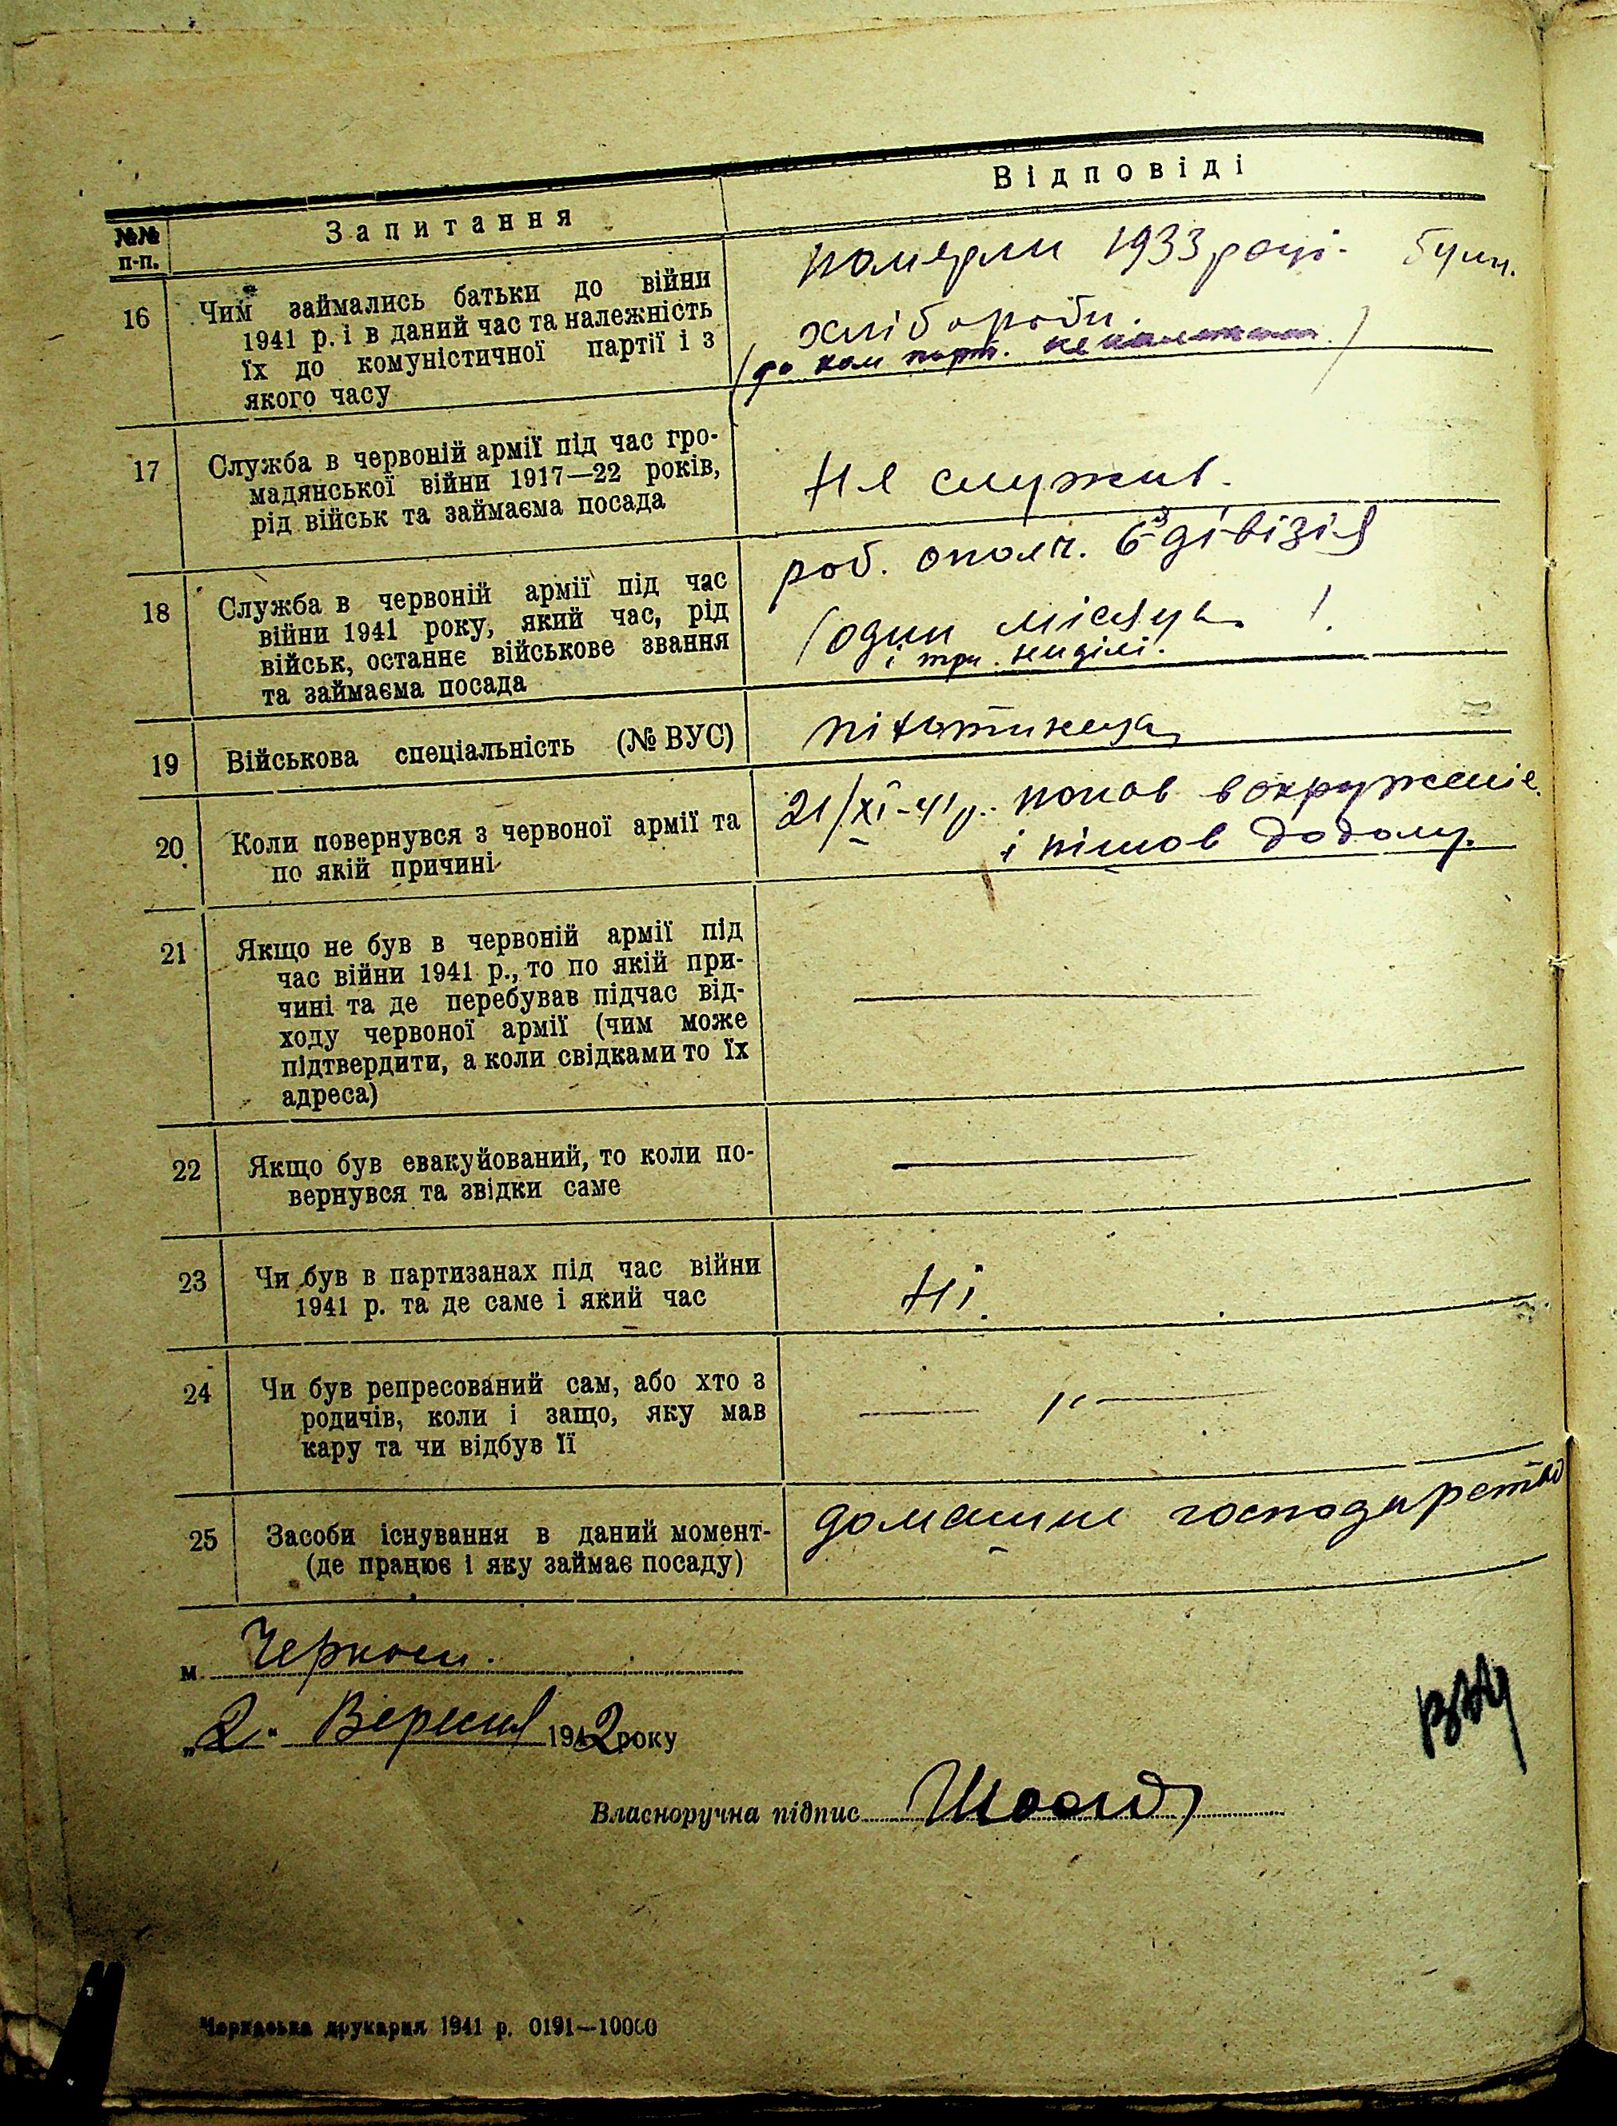 №№ п-п.
Запитання
Відповіді
16 Чим займались батьки до війни
1941 р. і в даний час та належність
їх до комуністичної партії і з
якого часу
померли 1933 році. були
хлібороби.
(до ком парт. не належали)
17 Служба в червоній армії під час гро-
мадянської війни 1917—22 років,
рід військ та займаєма посада
Не служив.
18 Служба в червоній армії під час
війни 1941 року, який час, рід
військ, останнє військове звання
та займаєма посада
роб. ополч. 6а дівізія
(один місяць !
і три неділі.
19 Військова спеціальність (№ ВУС)
20 Коли повернувся з червоної армії та
по якій причині
21/XI-41р. попав вокружение
і пішов додому.
21 Якщо не був в червоній армії під
час війни 1941 р., то по якій при-
чині та де перебував підчас від-
ходу червоної армії (чим може
підтвердити, а коли свідками то їх
адреса)
—
22 Якщо був евакуйований, то коли по-
вернувся та звідки саме
—
23 Чи був в партизанах під час війни
1941 р. та де саме і який час
Ні.
24 Чи був репресований сам, або хто з
родичів, коли і защо, яку мав
кару та чи відбув її
— " —
25 Засоби існування в даний момент-
(де працює і яку займає посаду)
домашне господарство
м. Черкаси.
„2" Вересня 1942 року
Власноручна підпис
Черкаська друкарня 1941 р. 0191—10000